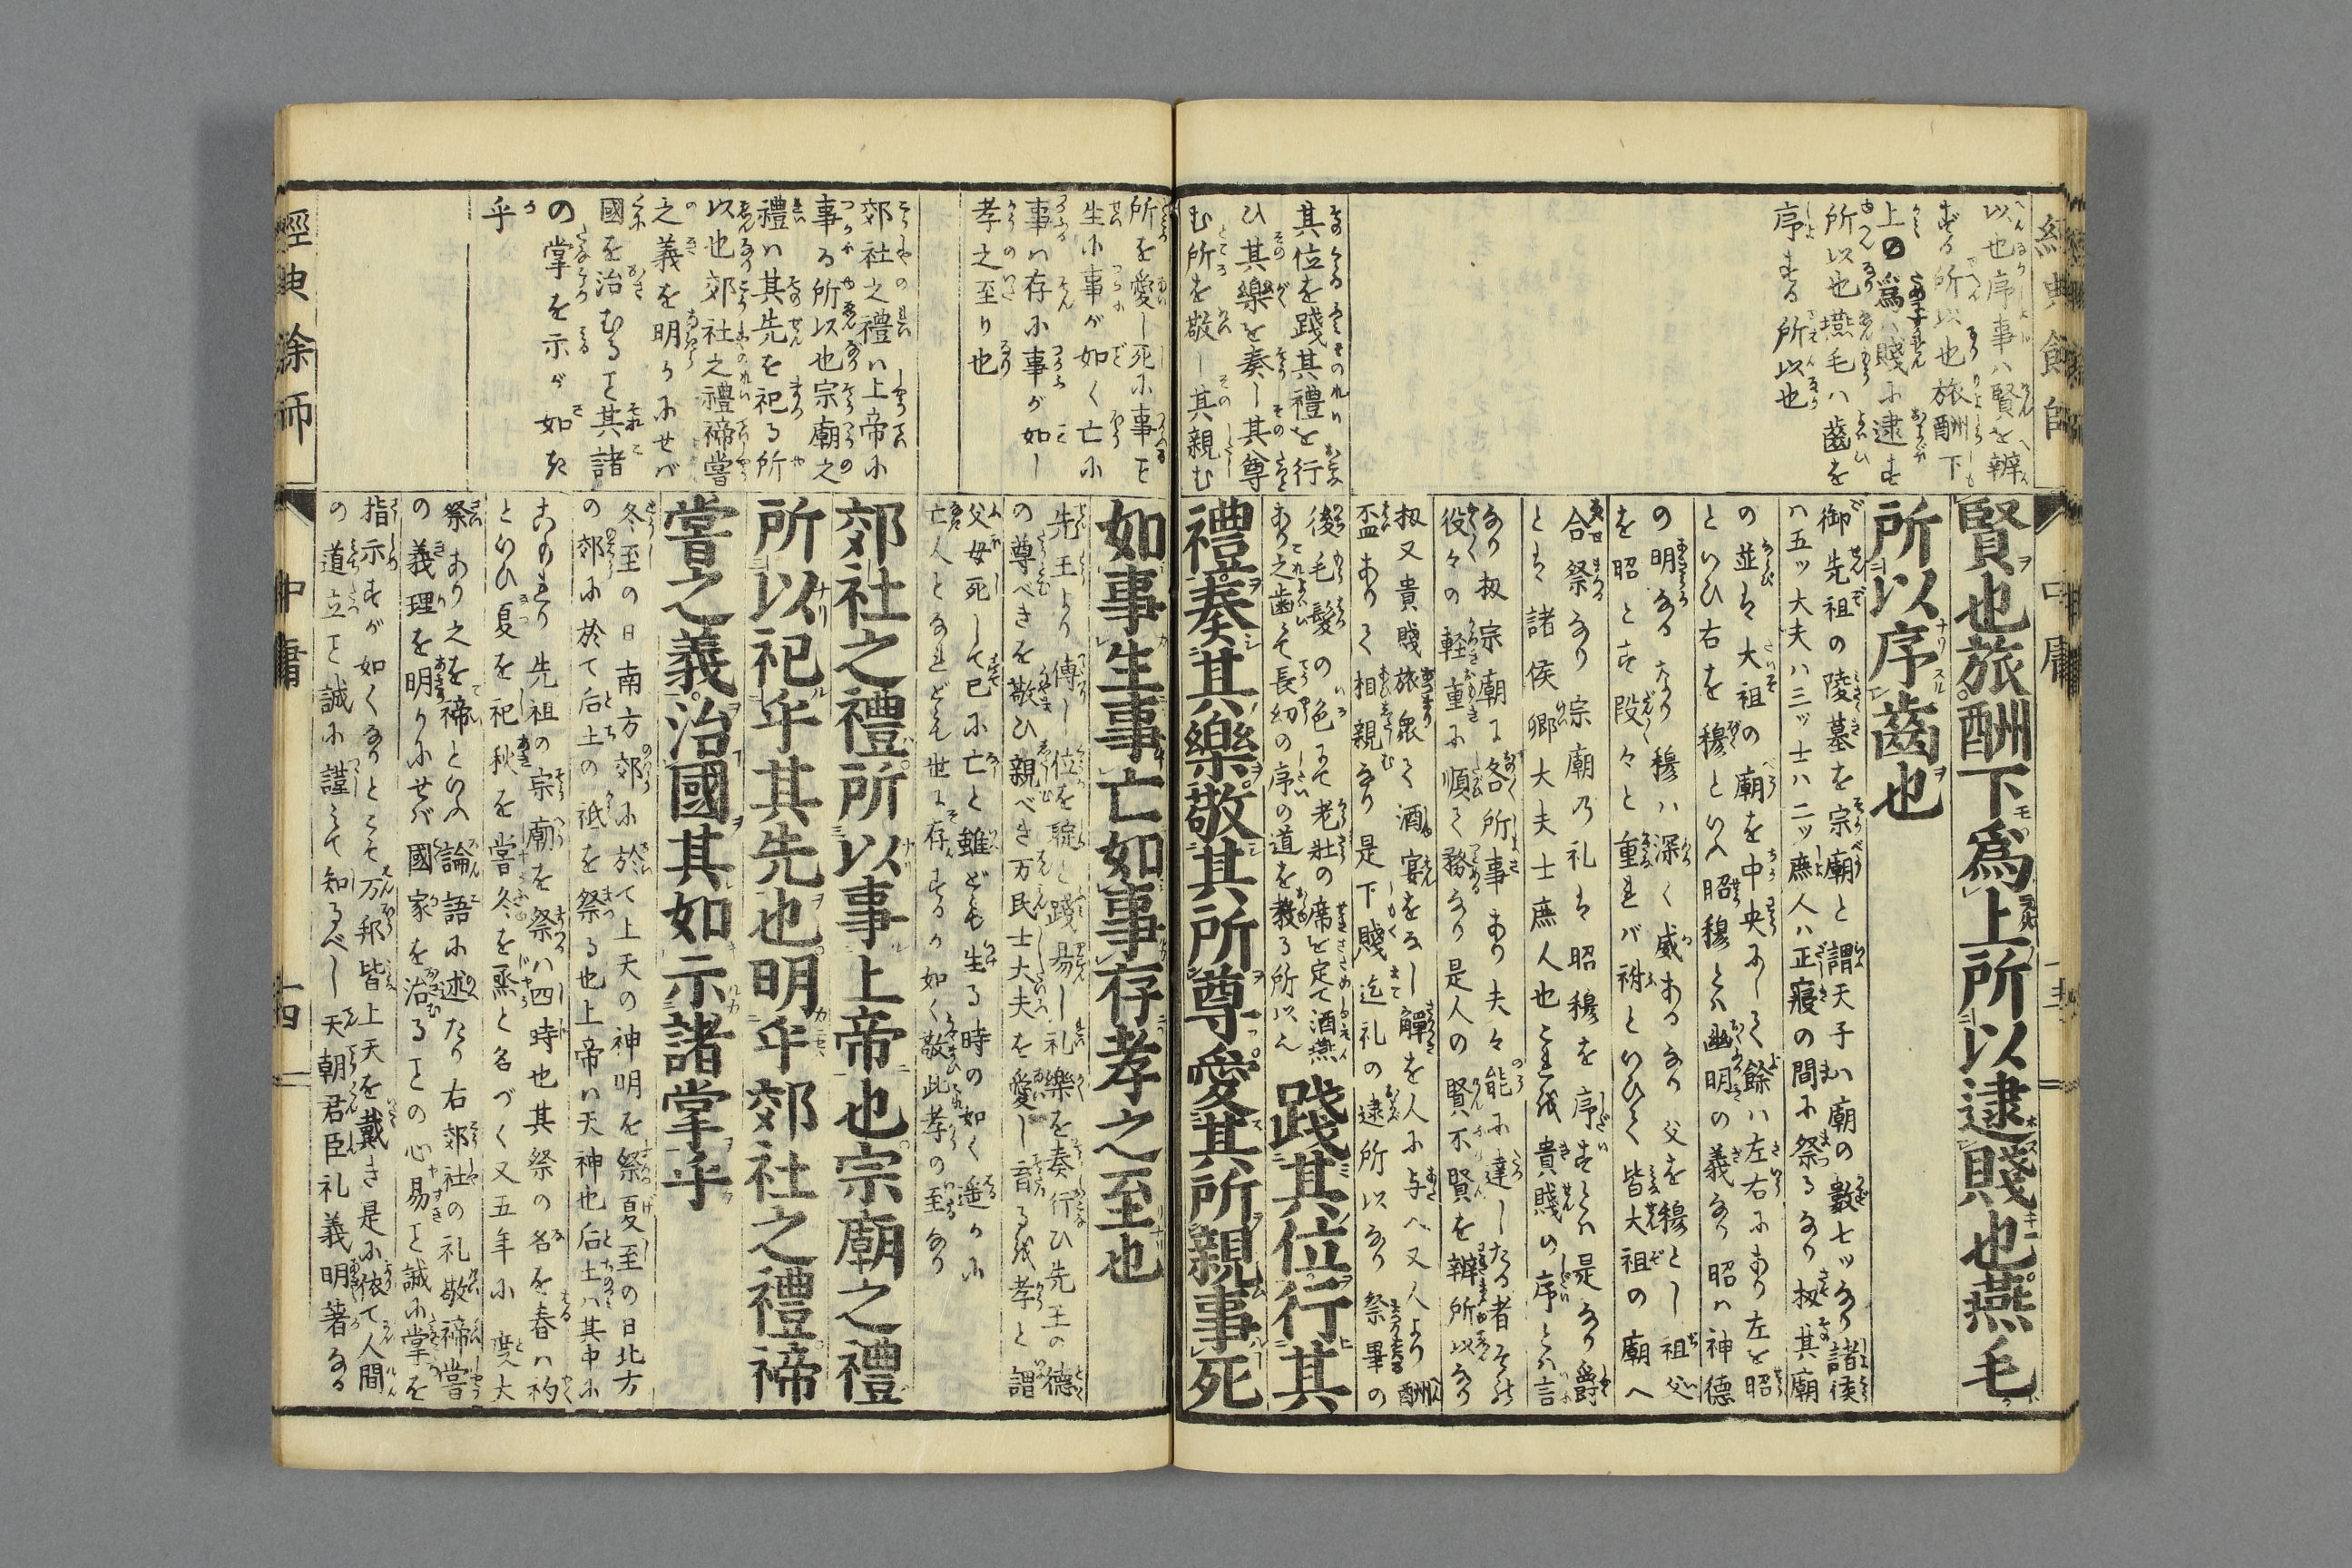 經典餘師
以也序事ハ賢を辨
ずる所以也旅酬下
上の爲ハ賤に逮す
所以也燕毛ハ齒を
序する所以也
其位を踐其禮を行
ひ其樂を奏し其尊
む所を敬し其親む
中庸
賢也旅酬下爲上所以逮賤也燕毛
所以序齒也
御先祖の陵墓を宗廟と謂天子ハ廟の數七ツなり諸侯
ハ五ツ大夫ハ三ツ士ハ二ツ庶人ハ正寢の間に祭るなり扨其廟
の並は大祖の廟を中央にして餘ハ左右にあり左を昭
といひ右を穆といへ昭穆とハ幽明の義なり昭ハ神德
の明なるなり穆ハ深く威あるなり父を穆とし祖父
を昭とす段々と重れバ祔といひて皆大祖の廟へ
合祭なり宗廟乃礼は昭穆を序するとハ是なり爵
とは諸侯卿大夫士庶人也これ貴賤の序とハ言
なり扨宗廟に各所事あり夫々能に達したる者それ
役々の軽重に順て務るなり是人の賢不賢を辨所以なり
扨又貴賤旅衆て酒宴をなし觶を人に与へ又人より酬
盃ありて相親むなり是下賤迄礼の逮所以なり祭畢の
後毛髮の色にて老壯の席を定て酒燕
あり之歯にて長幼の序の道を教る所以也
踐其位行其
禮奏其樂敬其所尊愛其所親事死
所を愛し死に事こと
生に事が如く亡に
事ハ存に事が如し
孝之至り也
郊社之禮ハ上帝に
事る所以也宗廟之
禮ハ其先を祀る所
以也郊社之禮禘嘗
之義を明かにせば
國を治むること其諸
の掌を示が如き
乎
如事生事亡如事存孝之至也
先王より傳し位を踐易し礼樂を奏行ひ先王の德
の尊べきを敬ひ親べき万民士大夫を愛し育る孝と謂
父母死して已に亡と雖ども生る時の如く遥かに
亡人となれども世に存するか如く敬此孝の至なり
郊社之禮所以事上帝也宗廟之禮
所以祀乎其先也明乎郊社之禮禘
嘗之義治國其如示諸掌乎
冬至の日南方郊に於て上天の神明を祭夏至の日北方
の郊に於て后土の祇を祭る也上帝ハ天神也后土ハ其中に
こもれり先祖の宗廟を祭ハ四時也其祭の名を春ハ礿
といひ夏を祀秋を嘗冬を烝と名づく又五年に一度大
祭あり之を禘といへ論語に述たり右郊社の礼敬禘嘗
の義理を明かにせば國家を治ることの心易こと誠に掌を
指示すが如くなりとこそ万邦皆上天を戴き是に依て人間
の道立こと誠に謹ミて知るべし天朝君臣礼義明著なる
經典餘師
中庸
十四